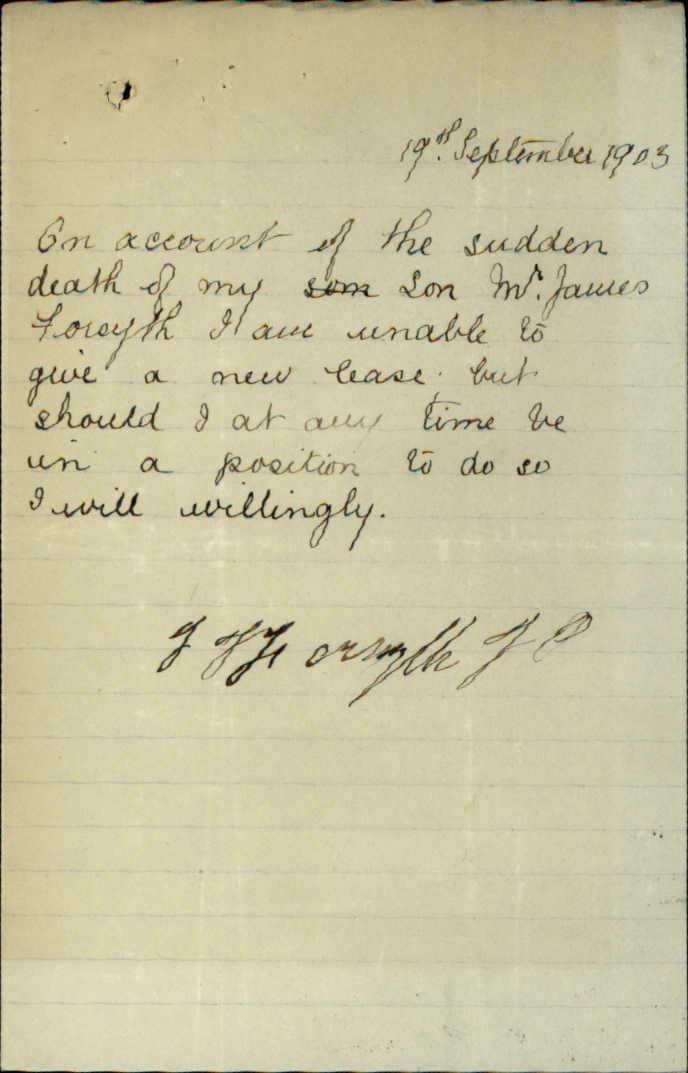 19th. September 1903
On account of the sudden
death of my som Son Mr. James
Forsyth I am unable to
give a new lease but
should I at any time be
in a position to do so
I will willingly.
Forsyth J P